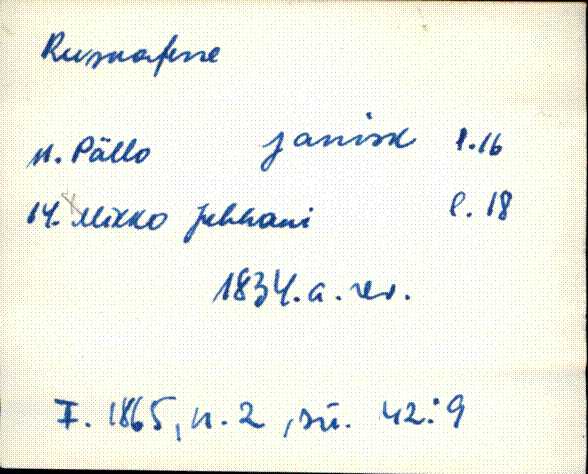 11. Pällo janisk l.16
14. Mikko Juhhani l. 18
1834. a. rev.
I. 1865, n. 2, sü. 42:9